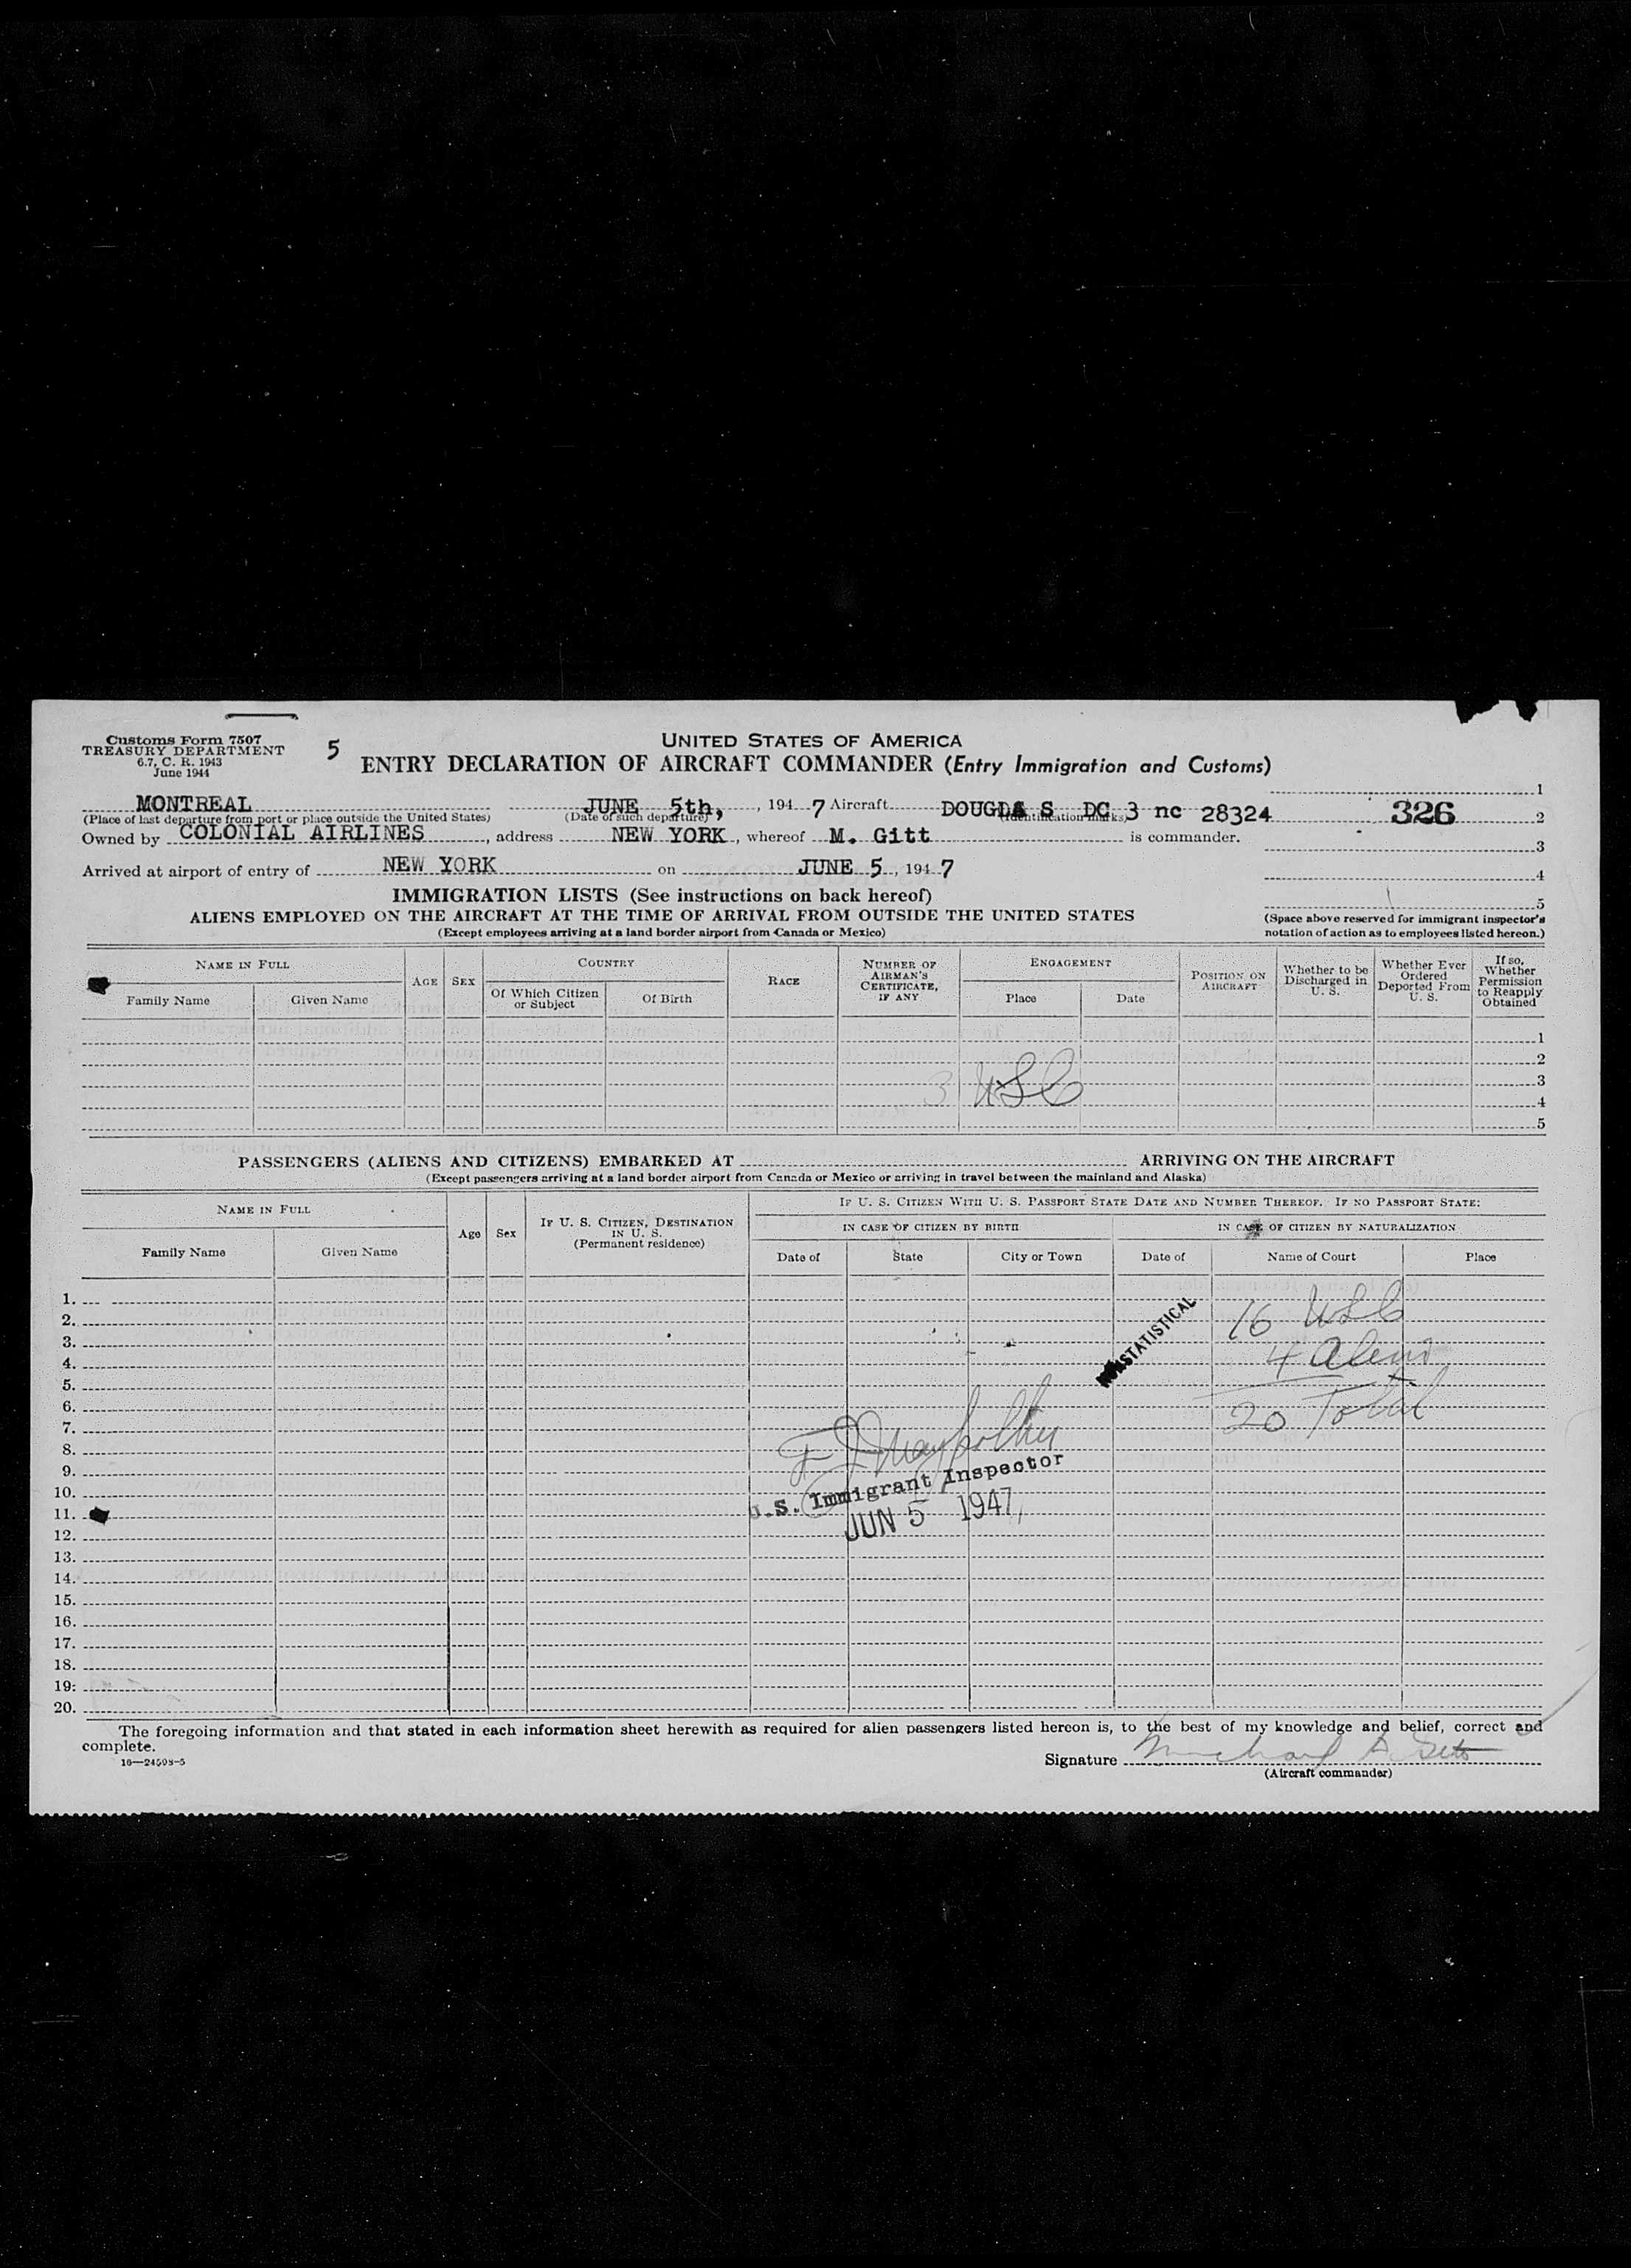 Customs Form 7507
TREASURY DEPARTMENT
6.7, C. R. 1943
June 1944
5
UNITED STATES OF AMERICA
ENTRY DECLARATION OF AIRCRAFT COMMANDER (Entry Immigration and Customs)
MONTREAL JUNE 5th, , 194 7 Aircraft DOUGLA S DC 3 nc 28324
(Place of last departure from port or place outside the United States) (Date of such departure) (Identification marks)
326
Owned by COLONIAL AIRLINES, address NEW YORK, whereof M. Gitt is commander.
Arrived at airport of entry of NEW YORK on JUNE 5, 194 7
1
2
3
4
5
(Space above reserved for immigrant inspector's
notation of action as to employees listed hereon.)
IMMIGRATION LISTS (See instructions on back hereof)
ALIENS EMPLOYED ON THE AIRCRAFT AT THE TIME OF ARRIVAL FROM OUTSIDE THE UNITED STATES
(Except employees arriving at a land border airport from Canada or Mexico)
NAME IN FULL
Family Name
Given Name
AGE
SEX
COUNTRY
Of Which Citizen or Subject
Of Birth
RACE
NUMBER OF AIRMAN'S CERTIFICATE, IF ANY
ENGAGEMENT
Place
Date
POSITION ON AIRCRAFT
Whether to be Discharged in U. S.
Whether Ever Ordered Deported From U. S.
If so, Whether Permission to Reapply Obtained
1
2
3
4
5
3 USC
PASSENGERS (ALIENS AND CITIZENS) EMBARKED AT ARRIVING ON THE AIRCRAFT
(Except passengers arriving at a land border airport from Canada or Mexico or arriving in travel between the mainland and Alaska)
NAME IN FULL
Family Name
Given Name
Age
Sex
IF U. S. CITIZEN, DESTINATION IN U. S.
(Permanent residence)
IF U. S. CITIZEN WITH U. S. PASSPORT STATE DATE AND NUMBER THEREOF. IF NO PASSPORT STATE:
IN CASE OF CITIZEN BY BIRTH
IN CASE OF CITIZEN BY NATURALIZATION
Date of
State
City or Town
Date of
Name of Court
Place
1.
2.
3.
4.
5.
6.
7.
8.
9.
10.
11.
12.
13.
14.
15.
16.
17.
18.
19.
20.
NONSTATISTICAL
16 USC
4 Aliens
20 Total
U.S. Immigrant Inspector
JUN 5 1947
The foregoing information and that stated in each information sheet herewith as required for alien passengers listed hereon is, to the best of my knowledge and belief, correct and
complete.
16—24598-5
Signature Michael
(Aircraft commander)